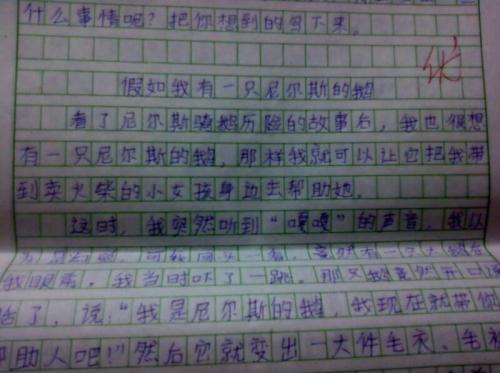 什么事情呢？把你想到的写下来。
优
假如我有一只尼尔斯的鹅
看了尼尔斯骑鹅历险的故事后，我也很想
有一只尼尔斯的鹅，那样我就可以让它把我带
到卖火柴的小女孩身边去帮助她。
这时，我突然听到“嘎嘎”的声音，我以
一看，竟然有一只大
我眼前。我当时吓了一跳。那只鹅竟然开口
话了，说：“我是尼尔斯的鹅，我现在就带你
助人吧！”然后它就变出一大件毛衣、毛